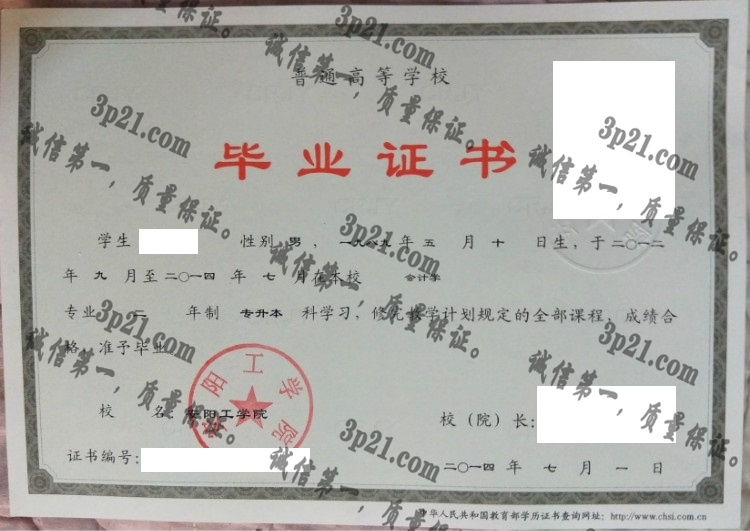 普通高等学校
毕业证书
学生 性别 男 ，一九八九年 五 月 十 日生，于二〇一二
年 九 月至二〇一四 年 七 月在本校 会计学
专业 二 年制 专升本 科学习，修完教学计划规定的全部课程，成绩合
格，准予毕业
校 名 阳工学院
校（院）长：
证书编号：
二〇一四 年 七 月 一 日
中华人民共和国教育部学历证书查询网址：http://www.chsi.com.cn
阳工学院
3p21.com
诚信第一，质量保证。
3p21.com
诚信第一，质量保证。
3p21.com
诚信第一，质量保证。
3p21.com
诚信第一，质量保证。
3p21.com
诚信第一，质量保证。
3p21.com
诚信第一，质量保证。
3p21.com
诚信第一，质量保证。
3p21.com
诚信第一，质量保证。